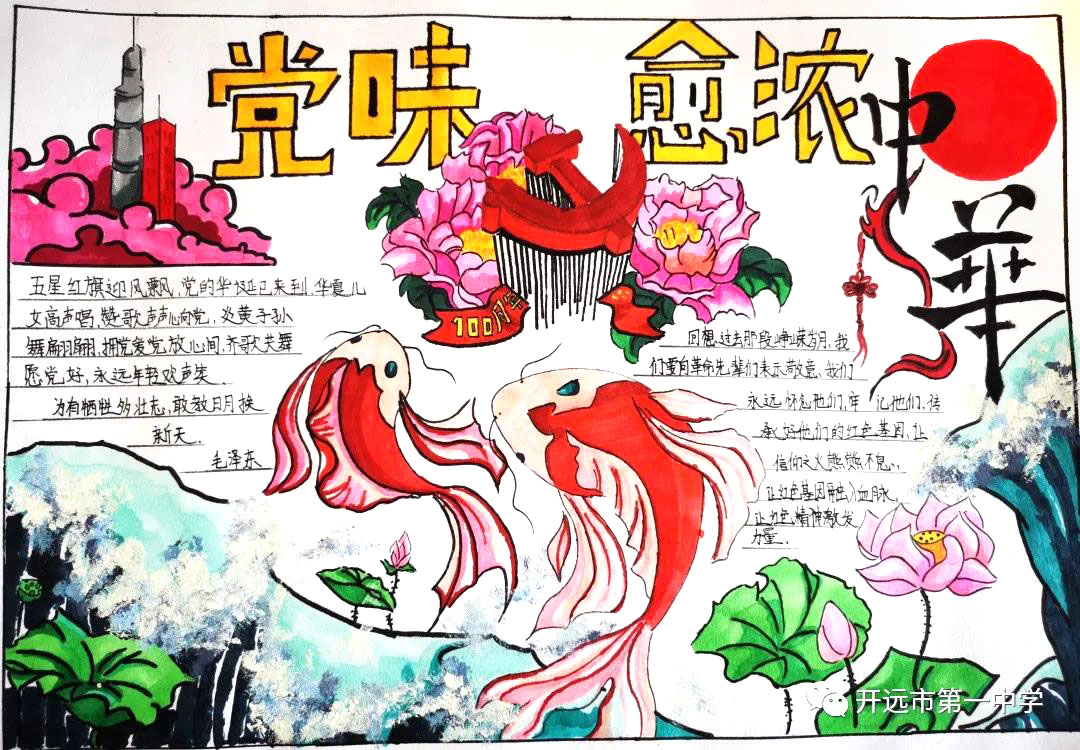 党味 愈浓
中華
五星红旗迎风飘,党的华诞已来到,华夏儿
女高声唱,赞歌声声心向党,炎黄子孙
舞翩翩,拥党爱党放心间,齐歌共舞
愿党好,永远年轻欢声笑.
为有牺牲多壮志,敢教日月换
新天.
毛泽东
100周年
回想过去那段峥嵘岁月,我
们要向革命先辈们表示敬意、我们
永远怀念他们,牢记他们,传
承好他们的红色基因,让
信仰之火熊熊不息,
让红色基因融入血脉,
让红色精神激发
力量.
开远市第一中学